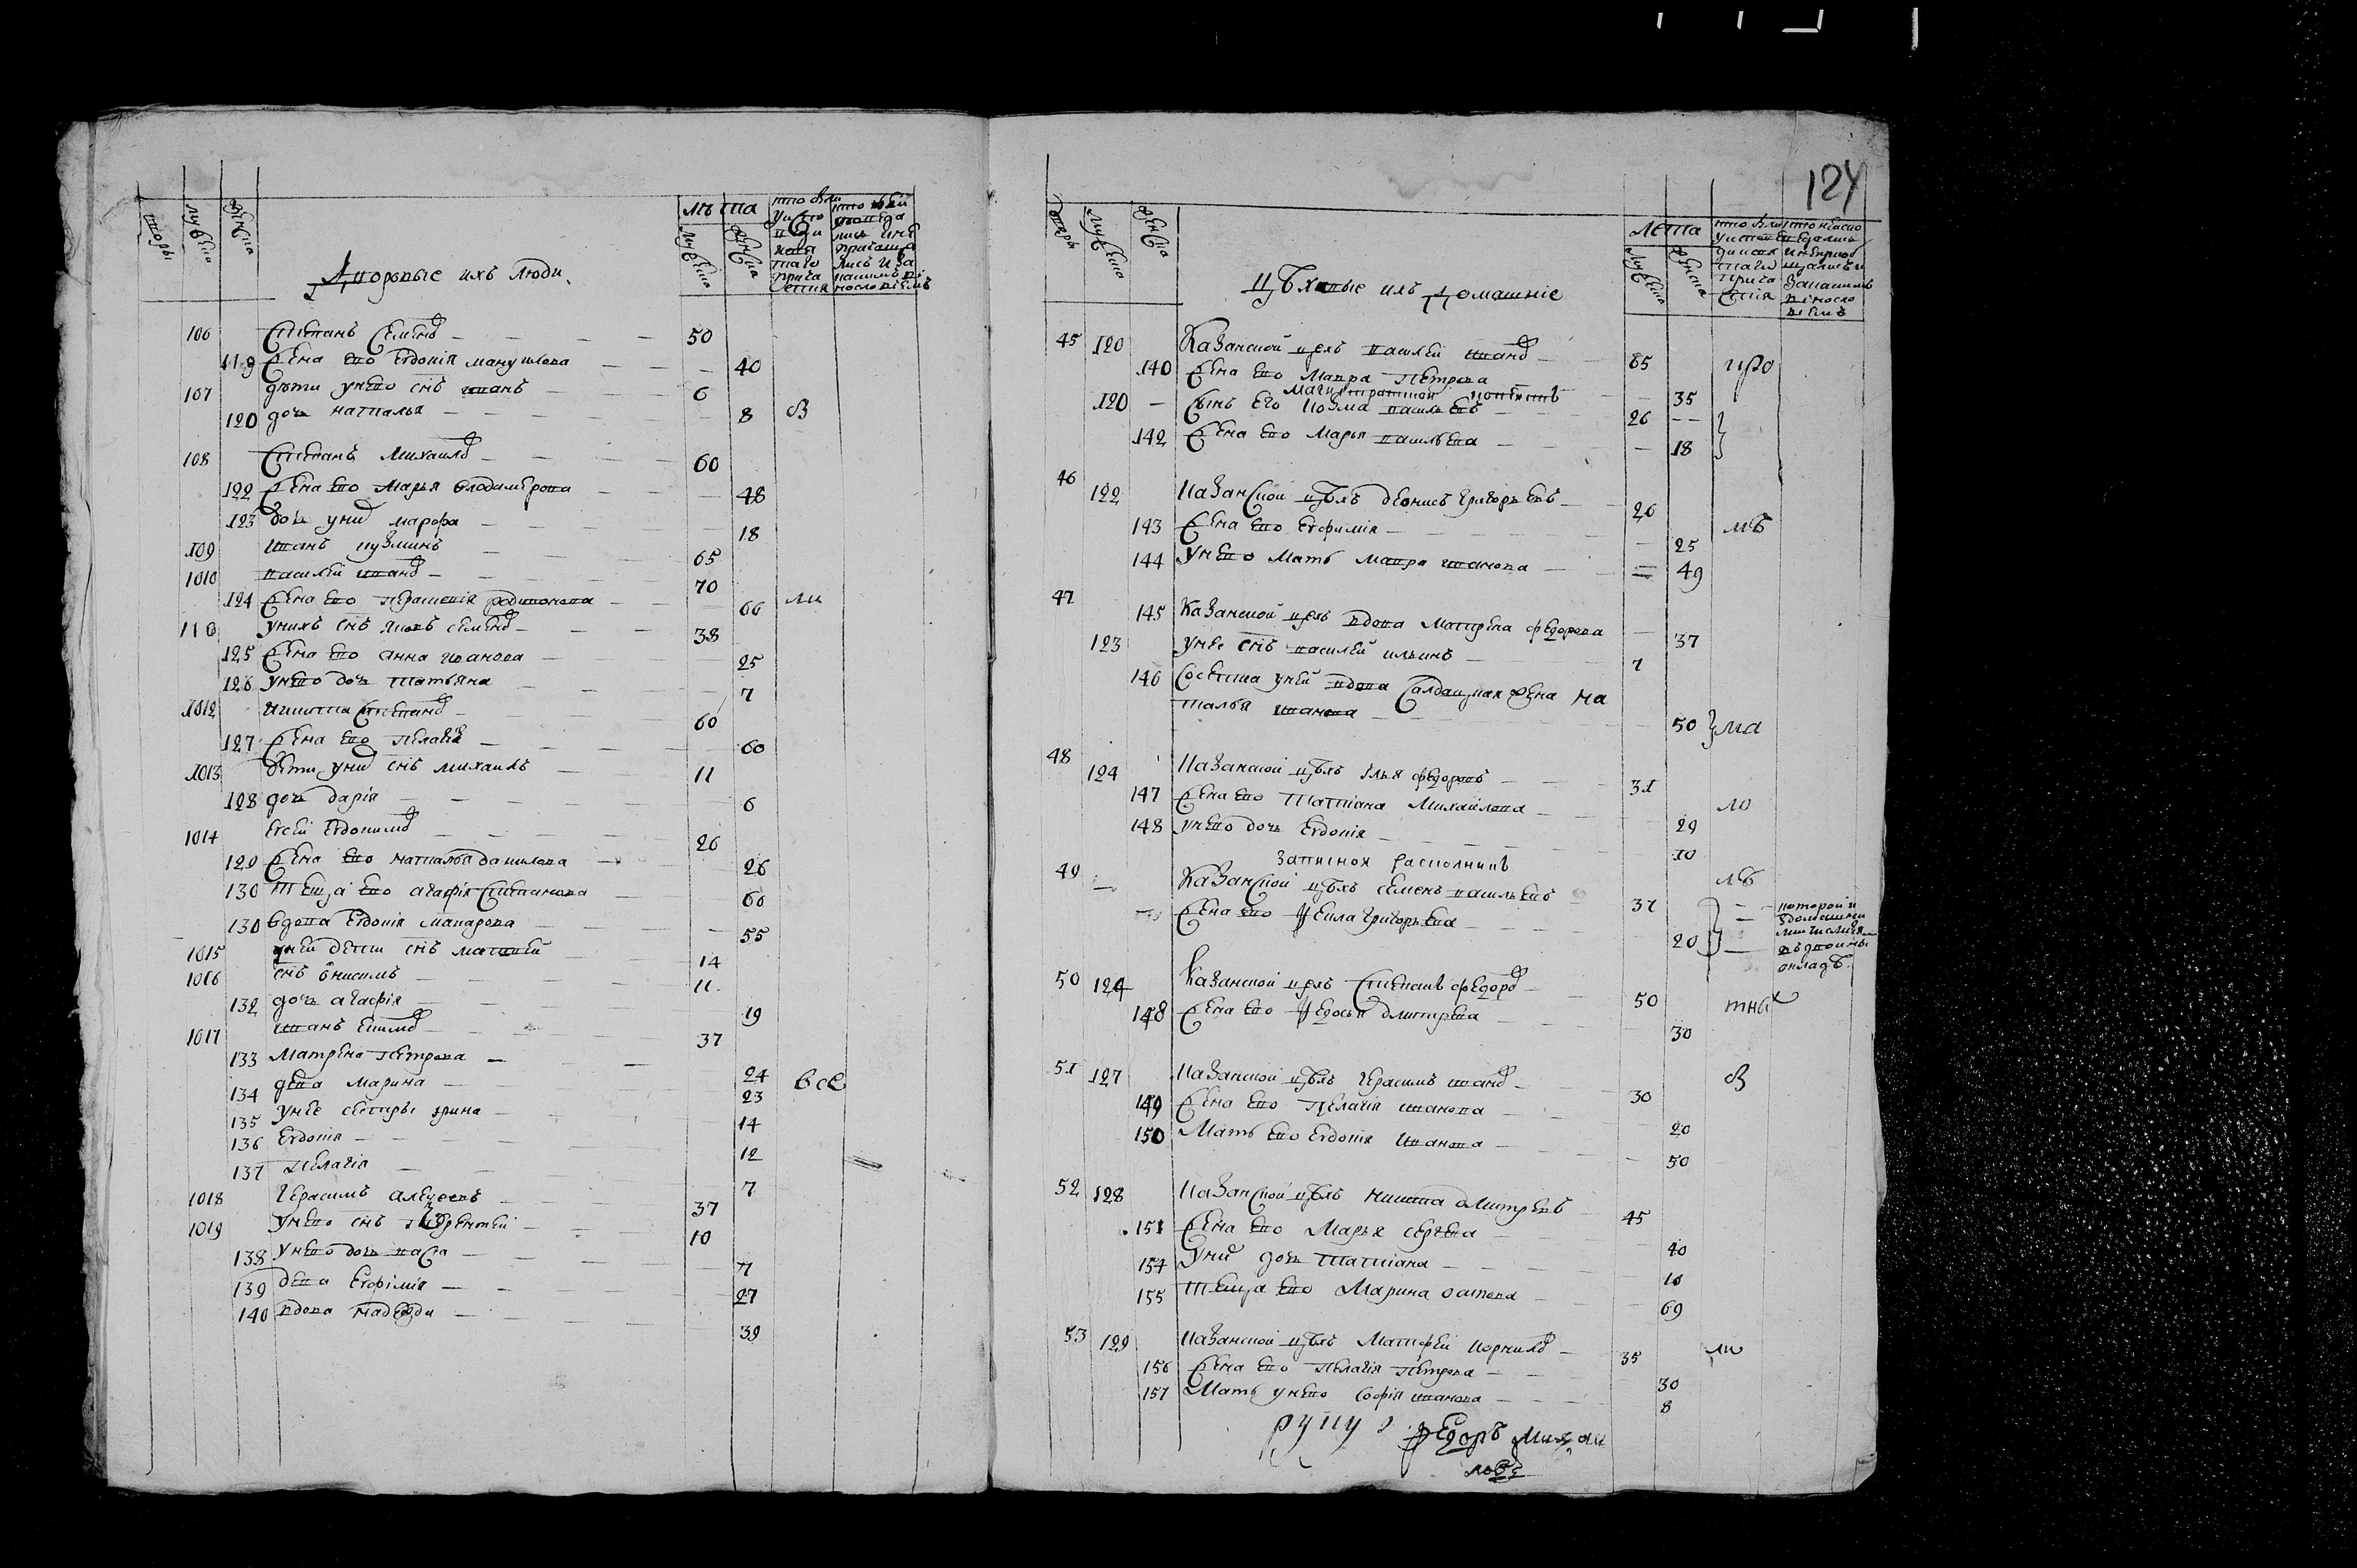 дворы
мужеска
женска
Дворовые ихъ люди
лѣта
мужеска
женска
106 Степанъ Семено͡в 50
119 жена ево Евдокия мануилова 40
107 дѣти унево снъ иванъ 6
120 дочь наталья 8 в
108 Степанъ Михаило͡в 60
122 жена ево Марья володимерова 48
123 дочь уних марфа 18
109 иванъ кузминъ 65
1010 василей ивано͡в 70
124 жена ево парасковия родионова 66 ли
110 унихъ снъ яковъ семено͡в 38
125 жена ево анна иванова 25
126 унево дочь татьяна 7
1012 никита степано͡в 60
127 жена ево пелагея 60
1013 дети уних снъ михаилъ 11
128 дочь дария 6
1014 евсей евдокимо͡в 26
129 жена ево наталья данилова 26
130 теща ево агафия степанова 60
130 вдова евдокия макарова 55
1015 уней дети снъ матвей 14
1016 снъ онисимъ 11
132 дочь агафия 19
1017 иванъ ефимо͡в 37
133 матрена петрова 24 все
134 девка марина 23
135 унее сестры ирина 14
136 евдокия 12
137 пелагия 7
1018 герасимъ алексеевъ 37
1019 унево снъ терентей 10
138 унево дочь васса 7
139 девка евфимия 27
140 вдова надежда 39
124
дворы
мужеска
женска
Цѣховые ихъ домашние
лета
мужеска
женска
45 120 Казанской цехъ василей ивано͡в 65
140 жена ево мавра петрова 35
магистратской
120 сынъ его козма васильевъ 26
142 жена ево марья васильева 18
46 122 казанской цѣхъ денисъ григорьевъ 26
143 жена ево евфимия 25 мѣ
144 унево мать мавра иванова 49
47 145 казанской цехъ вдова матрена федорова 37
123 унее снъ василей ильинъ 7
146 соседка уней вдова салдацкая жена на
талья иванова 50 ма
48 124 казанской цѣхъ илья федоровъ 31
147 жена ево татиана михайлова 29 ло
148 унево дочь евдокия 10
записной расколникъ
49 казанской цѣхъ семенъ васильевъ 37
жена ево фекла григорьева 20
которой и
здомашни
ми числится
въ двойном
окладѣ
50 124 казанской цехъ степанъ федоро͡в 50
148 жена ево федосья дмитрева 30
51 127 казанской цѣхъ герасимъ ивано͡в 30 в
149 жена ево пелагия иванова 20
150 мать ево евдокия иванова 50
52 128 казанской цѣхъ никита дмитревъ 45
151 жена ево марья сергеева 40
154 уних дочь татиана 10
155 теща ево марина осипова 69
53 129 казанской цѣхъ матфей корнило͡в 35 ли
156 жена ево пелагия петрова 30
157 мать унево софия иванова 8
руку
федоръ михаи
ловъ